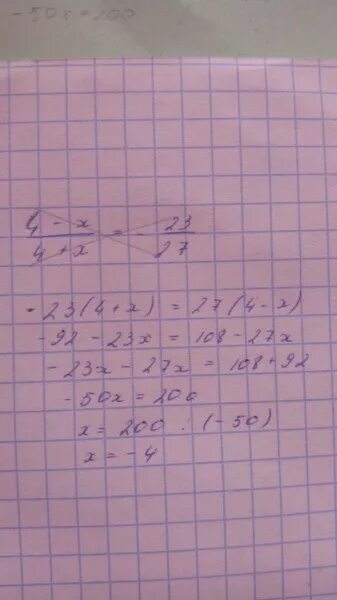 -50x=100
4 - x / 4 + x = - 23 / 27
- 23(4+x) = 27(4-x)
-92 - 23x = 108 - 27x
- 23x - 27x = 108+92
- 50x = 200
x = 200 : (-50)
x = -4